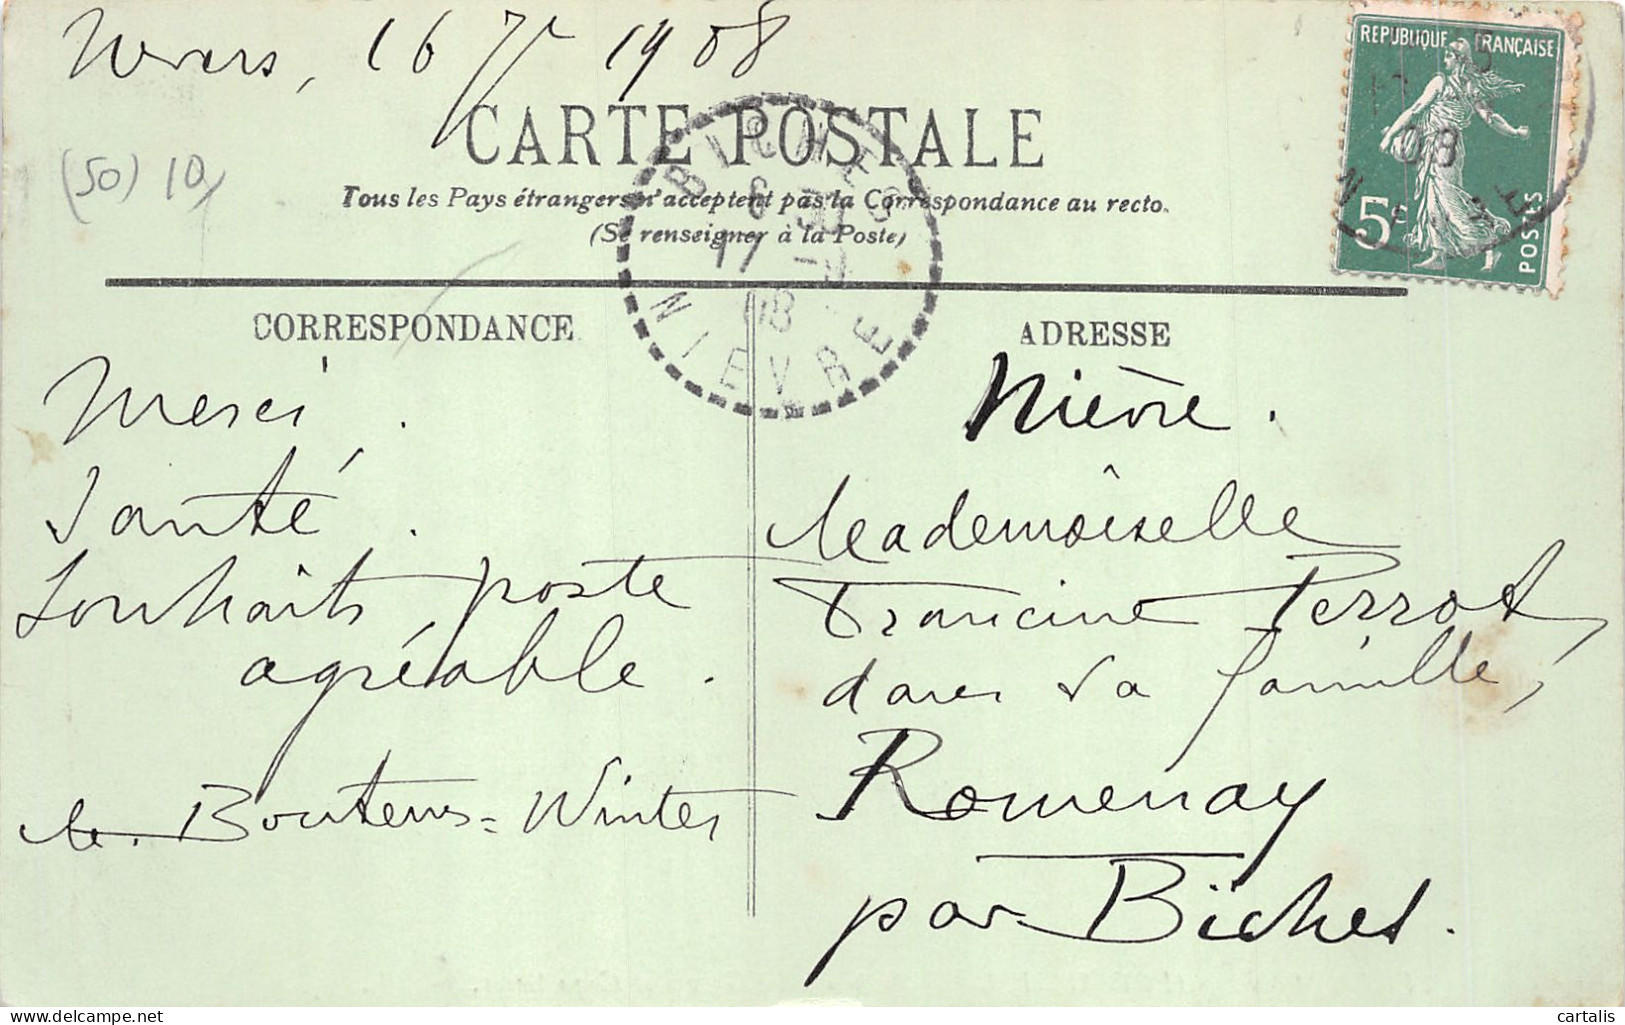 Nevers, 16 7re 1908
CARTE POSTALE
(50) 10
Tous les Pays étrangers n'acceptent pas la Correspondance au recto.
(Se renseigner à la Poste)
REPUBLIQUE FRANÇAISE
5c
POSTES
BICHES
6
17 -9
08
NIEVRE
08
CORRESPONDANCE
Merci.
Santé.
Souhaits poste
agréable.
M. Boutens=Winter
ADRESSE
Nièvre.
Mademoiselle
Francine Perrot,
dans sa famille,
Romenay
par Biches.
cartalis